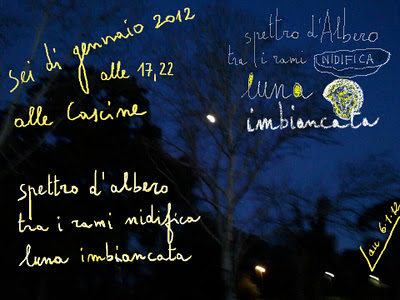 sei di gennaio 2012
alle 17,22
alle Cascine
spettro d'Albero
tra i rami NIDIFICA
luna
imbiancata
spettro d'albero
tra i rami nidifica
luna imbiancata
Lau 6.1.12